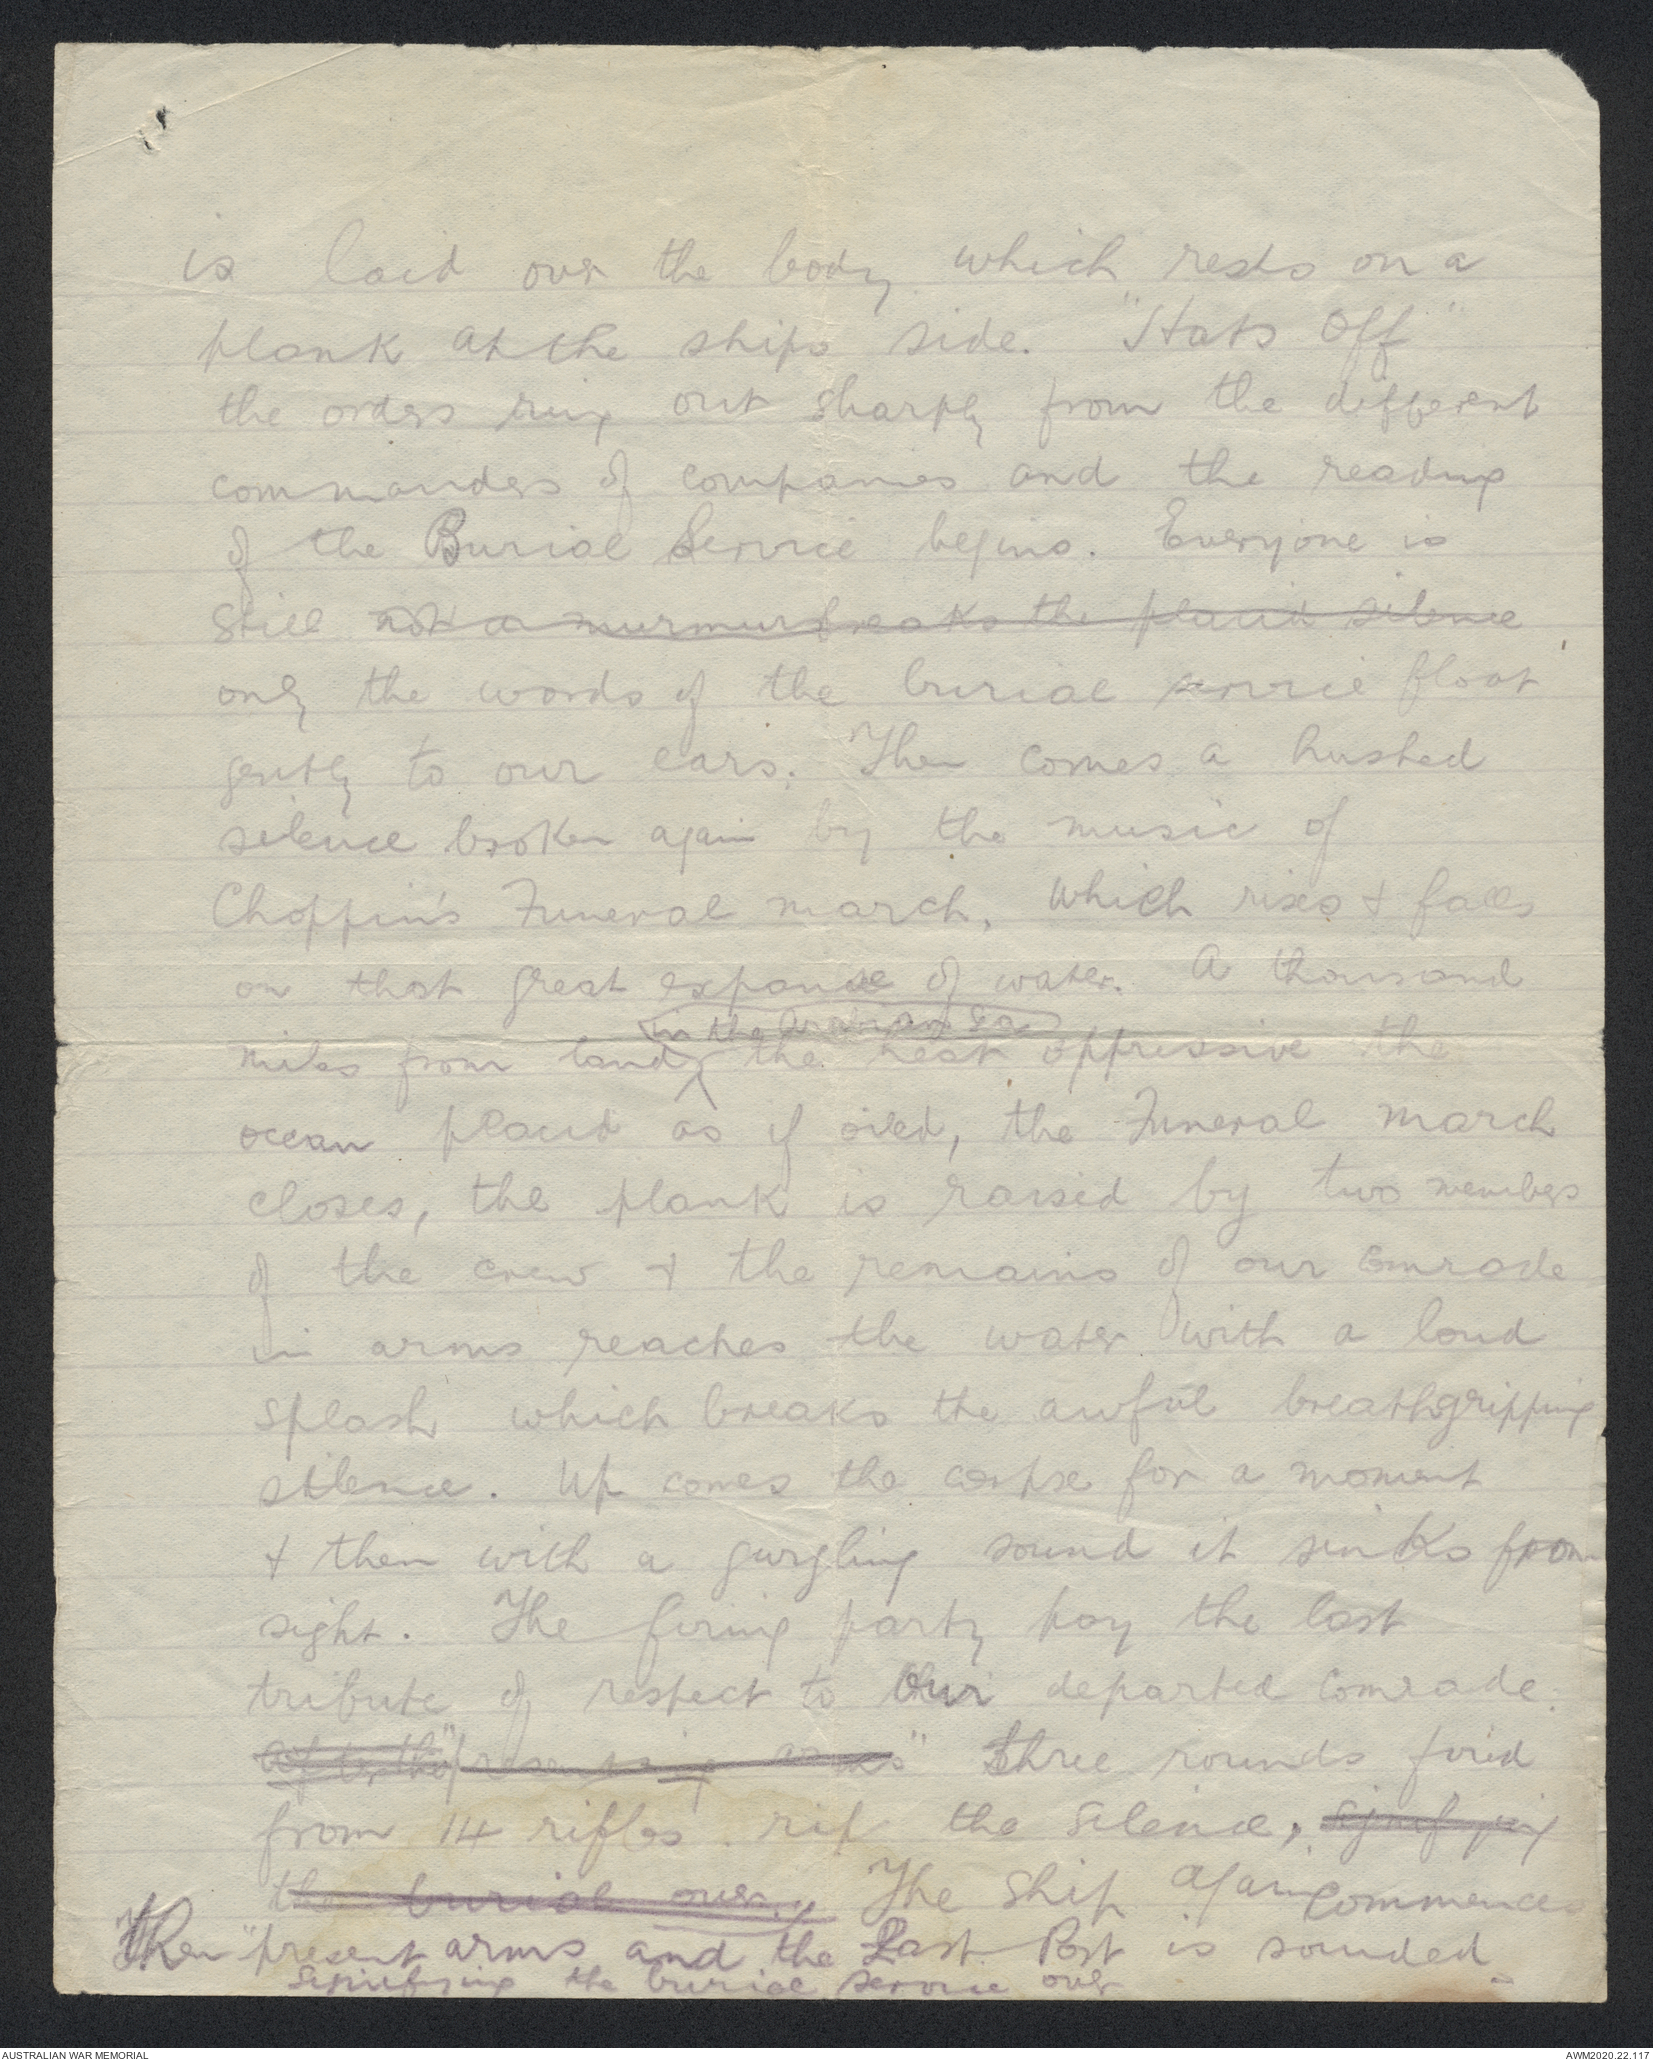 is laid over the body which rests on a
plank at the ships side. "Hats Off"
the orders ring out sharply from the different
commanders of companies and the reading
of the Burial Service begins. Everyone is
still not a murmur breaks the placid silence
only the words of the burial service float
gently to our ears. Then comes a hushed
silence broken again by the music of
Choppin's Funeral march, which rises & falls
on that great expanse of water. A thousand
in the Arabian Sea
miles from land the heat oppressive the
ocean placid as if oiled, the Funeral march
closes, the plank is raised by two members
of the crew & the remains of our comrade
in arms reaches the water with a loud
splash which breaks the awful breathgripping
silence. Up comes the corpse for a moment
& then with a gurgling sound it sinks from
sight. The firing party pay the last
tribute of respect to our departed comrade.
after the "presenting arms" three rounds fired
from 14 rifles rip the silence, signifying
the burial over. The ship again commences
Then "present arms and the Last Post is sounded
signifying the burial service over
AUSTRALIAN WAR MEMORIAL
AWM2020.22.117